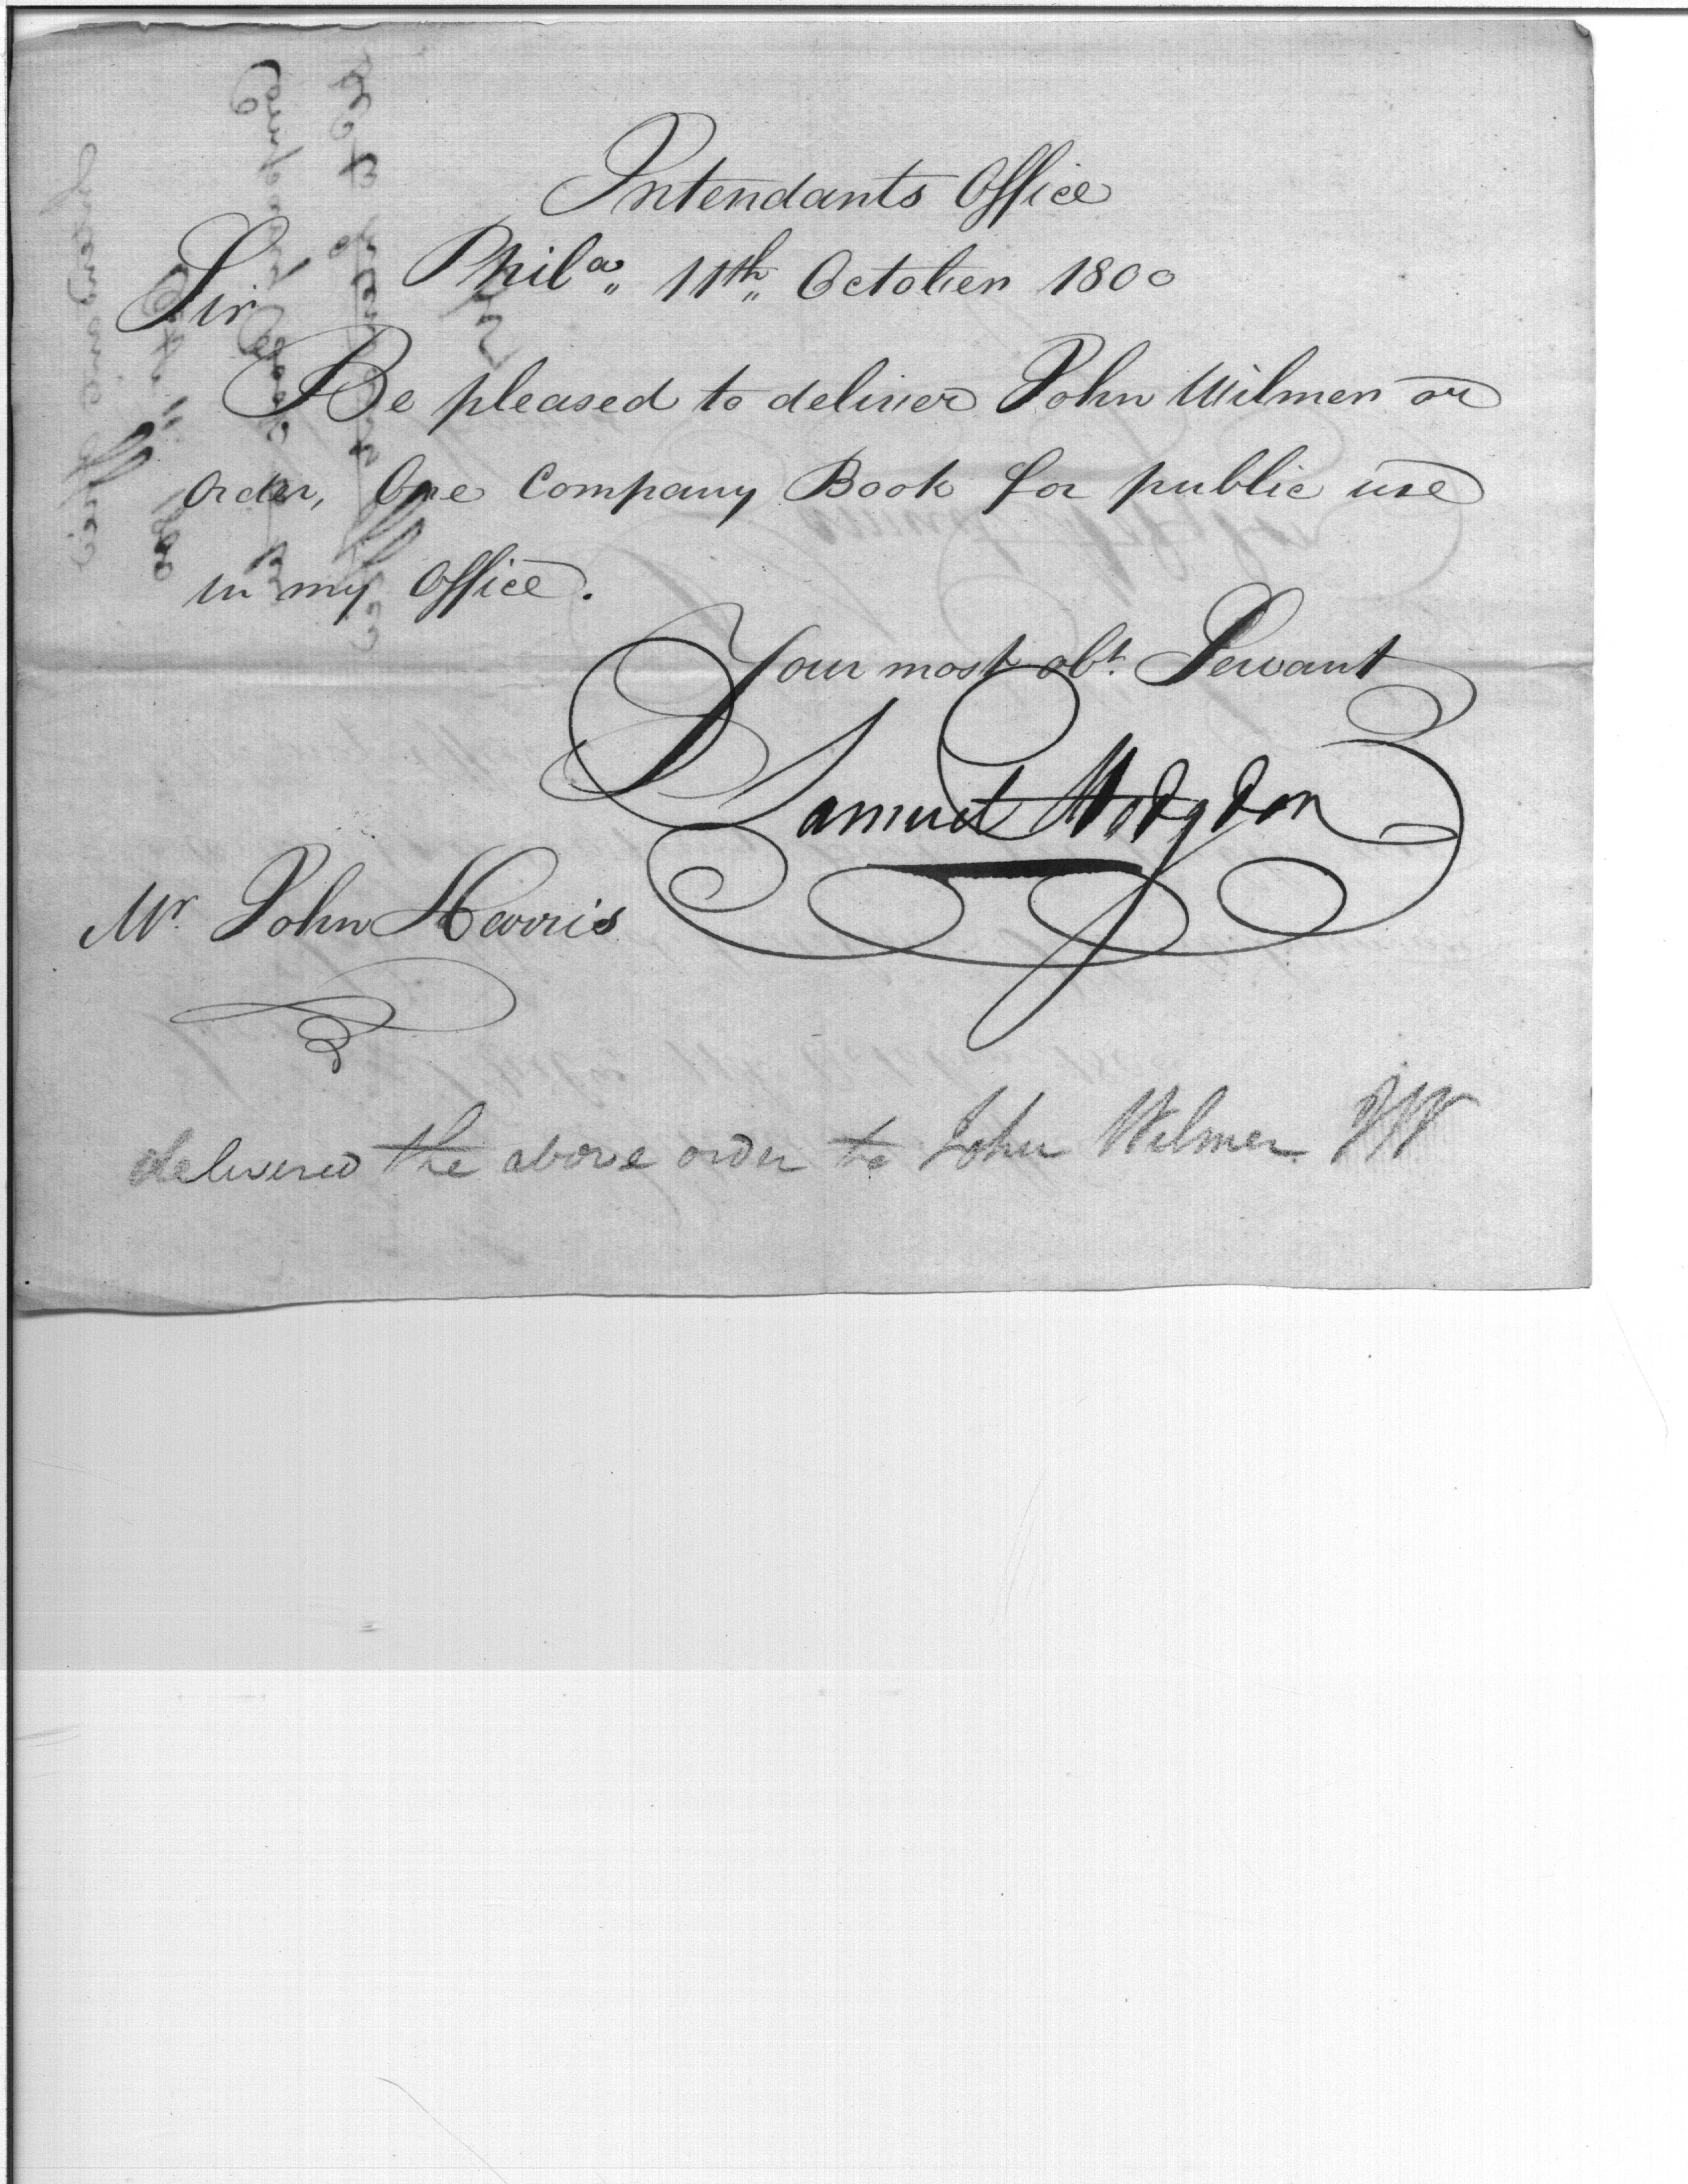 Intendants Office
Phila. 11th October 1800
Sir
Be pleased to deliver John Wilmer or
order, One Company Book for public use
in my Office.
Your most obt. Servant
Samuel Hodgdon
Mr. John Harris
delivered the above order to John Wilmer JW